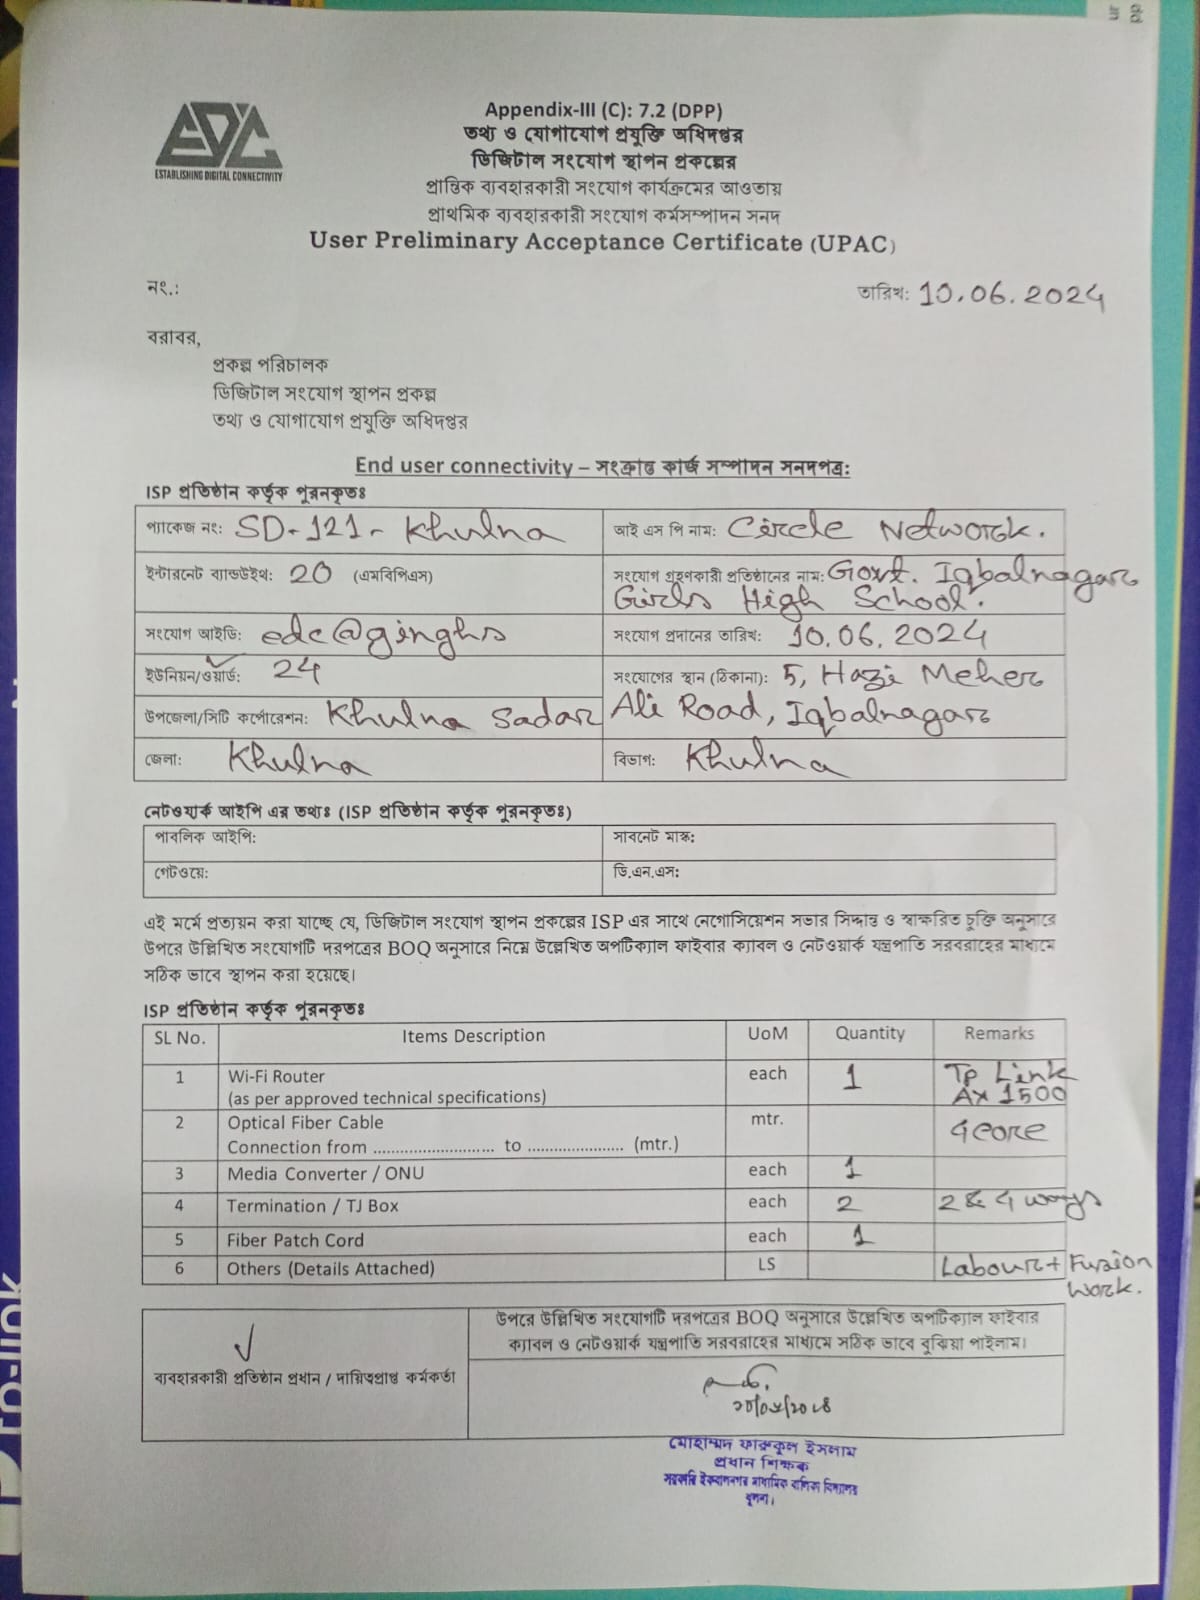 EDC
ESTABLISHING DIGITAL CONNECTIVITY
Appendix-III (C): 7.2 (DPP)
তথ্য ও যোগাযোগ প্রযুক্তি অধিদপ্তর
ডিজিটাল সংযোগ স্থাপন প্রকল্পের
প্রান্তিক ব্যবহারকারী সংযোগ কার্যক্রমের আওতায়
প্রাথমিক ব্যবহারকারী সংযোগ কর্মসম্পাদন সনদ
User Preliminary Acceptance Certificate (UPAC)
নং.:
তারিখ: 10.06.2024
বরাবর,
প্রকল্প পরিচালক
ডিজিটাল সংযোগ স্থাপন প্রকল্প
তথ্য ও যোগাযোগ প্রযুক্তি অধিদপ্তর
End user connectivity – সংক্রান্ত কার্জ সম্পাদন সনদপত্র:
ISP প্রতিষ্ঠান কর্তৃক পুরনকৃতঃ
প্যাকেজ নং: SD-121- Khulna
আই এস পি নাম: Circle Network.
ইন্টারনেট ব্যান্ডউইথ: 20 (এমবিপিএস)
সংযোগ গ্রহণকারী প্রতিষ্ঠানের নাম: Govt. Iqbalnagar
Girls High School.
সংযোগ আইডি: edc@ginghs
সংযোগ প্রদানের তারিখ: 10.06.2024
ইউনিয়ন/ওয়ার্ড: 24
সংযোগের স্থান (ঠিকানা): 5, Hazi Meher
উপজেলা/সিটি কর্পোরেশন: Khulna Sadar
Ali Road, Iqbalnagar
জেলা: Khulna
বিভাগ: Khulna
নেটওয়ার্ক আইপি এর তথ্যঃ (ISP প্রতিষ্ঠান কর্তৃক পুরনকৃতঃ)
পাবলিক আইপি:
সাবনেট মাস্ক:
গেটওয়ে:
ডি.এন.এস:
এই মর্মে প্রত্যয়ন করা যাচ্ছে যে, ডিজিটাল সংযোগ স্থাপন প্রকল্পের ISP এর সাথে নেগোসিয়েশন সভার সিদ্ধান্ত ও স্বাক্ষরিত চুক্তি অনুসারে
উপরে উল্লিখিত সংযোগটি দরপত্রের BOQ অনুসারে নিম্নে উল্লেখিত অপটিক্যাল ফাইবার ক্যাবল ও নেটওয়ার্ক যন্ত্রপাতি সরবরাহের মাধ্যমে
সঠিক ভাবে স্থাপন করা হয়েছে।
ISP প্রতিষ্ঠান কর্তৃক পুরনকৃতঃ
SL No. Items Description UoM Quantity Remarks
1 Wi-Fi Router each 1 Tp Link
(as per approved technical specifications) AX 1500
2 Optical Fiber Cable mtr. 4 core
Connection from ............................ to ...................... (mtr.)
3 Media Converter / ONU each 1
4 Termination / TJ Box each 2 2 & 4 ways
5 Fiber Patch Cord each 1
6 Others (Details Attached) LS Labour + Fusion
work.
উপরে উল্লিখিত সংযোগটি দরপত্রের BOQ অনুসারে উল্লেখিত অপটিক্যাল ফাইবার
ক্যাবল ও নেটওয়ার্ক যন্ত্রপাতি সরবরাহের মাধ্যমে সঠিক ভাবে বুঝিয়া পাইলাম।
ব্যবহারকারী প্রতিষ্ঠান প্রধান / দায়িত্বপ্রাপ্ত কর্মকর্তা
মোহাম্মদ ফারুকুল ইসলাম
প্রধান শিক্ষক
সরকারি ইকবালনগর মাধ্যমিক বালিকা বিদ্যালয়
খুলনা।
tp-link